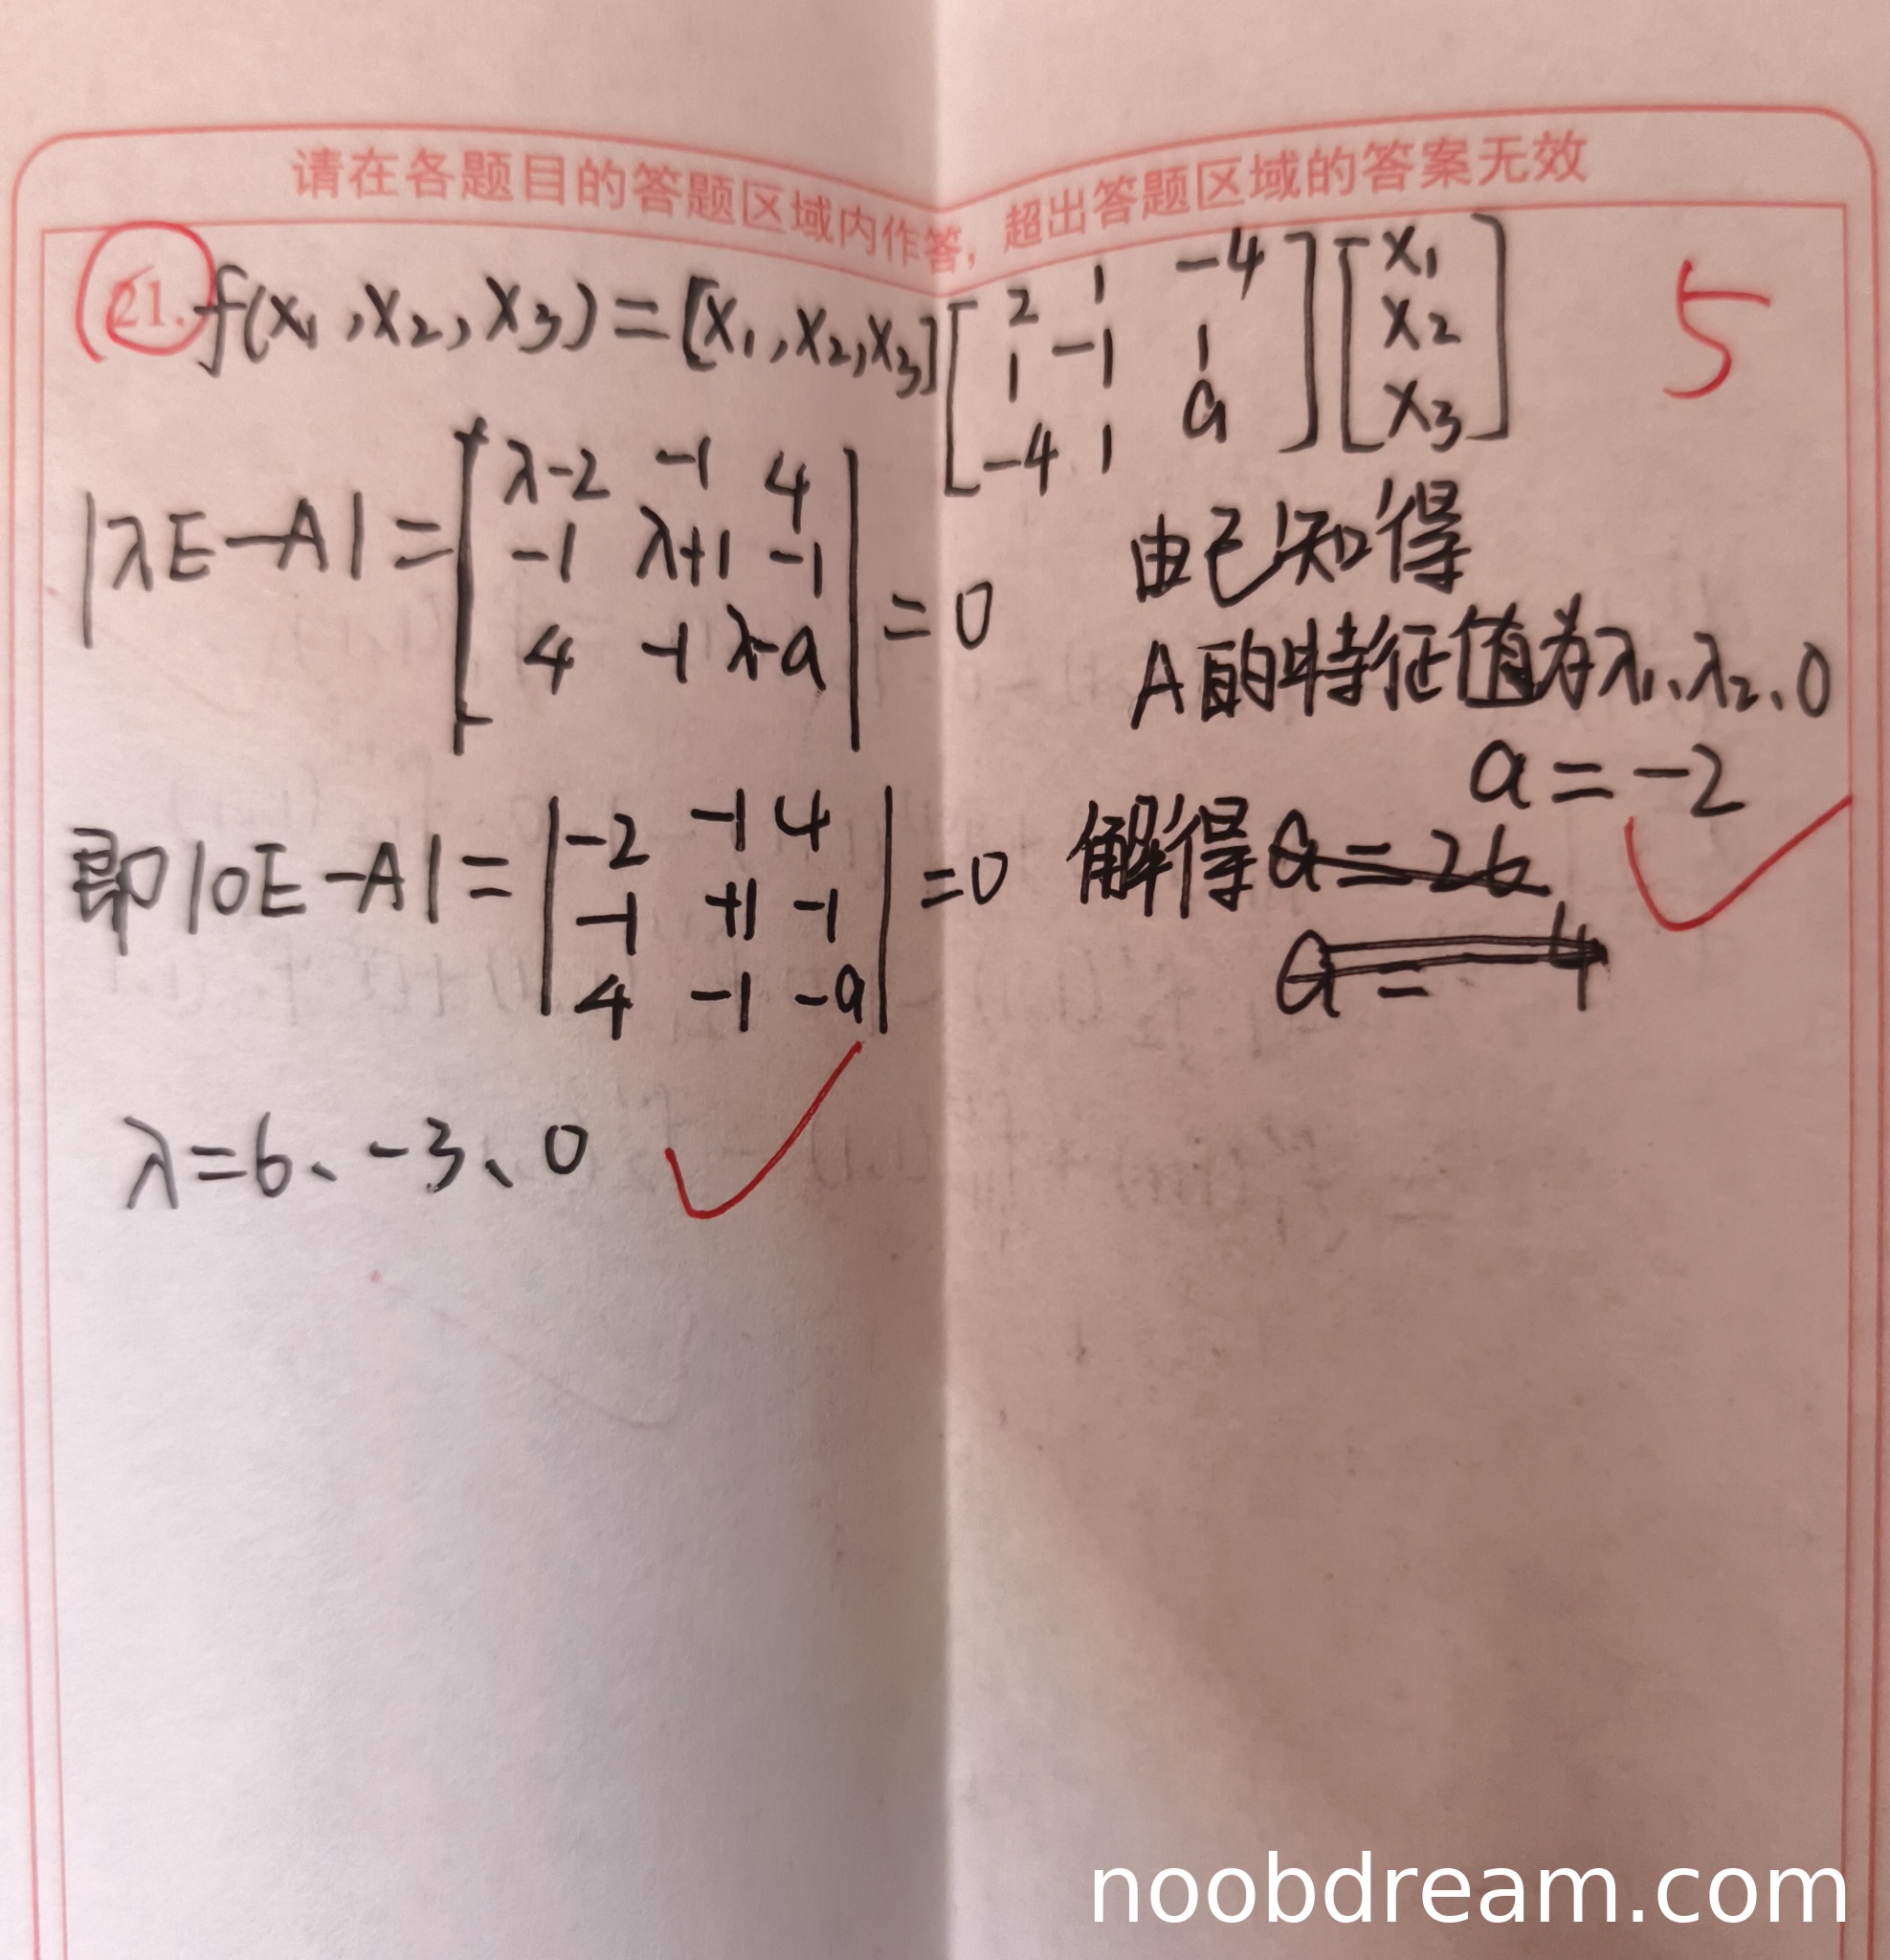 请在各题目的答题区域内作答，超出答题区域的答案无效
21. f(x₁,x₂,x₃)=[x₁,x₂,x₃] [2 1 -4; 1 -1 1; -4 1 a] [x₁; x₂; x₃]
5
|λE-A|= |λ-2 -1 4; -1 λ+1 -1; 4 -1 λ-a| =0
由已知得
A的特征值为λ₁、λ₂、0
即|0E-A|= |-2 -1 4; -1 +1 -1; 4 -1 -a| =0
a=-2
解得 a=26
a= 4
λ=6、-3、0
noobdream.com